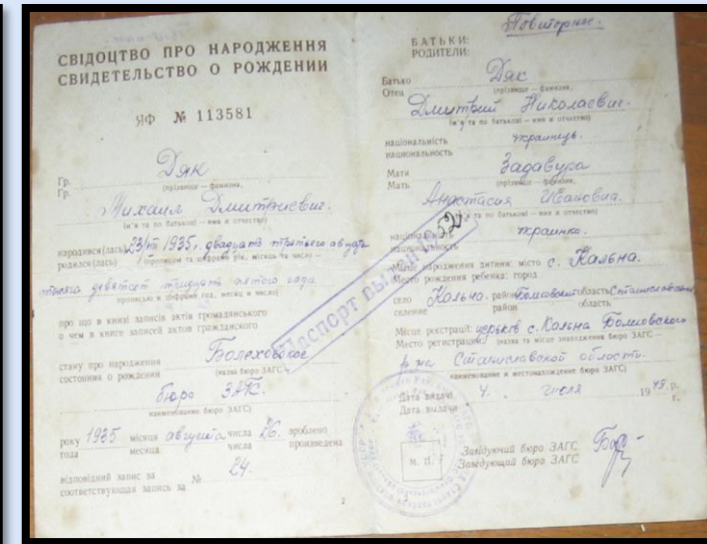 СВІДОЦТВО ПРО НАРОДЖЕННЯ
СВИДЕТЕЛЬСТВО О РОЖДЕНИИ
ЯФ № 113581
Гр. Дяк
Гр. (прізвище — фамилия,
Михаил Дмитриевич.
(ім'я та по батькові — имя и отчество)
народився(лась) 23/VIII 1935 г. двадцать третьего августа
родился(лась) (прописом та цифрами рік, місяць та число —
тысяча девятсот тридцать пятого года
прописью и цифрами год, месяц и число)
про що в книзі записів актів громадянського
о чем в книге записей актов гражданского
стану про народження Болеховское
состояния о рождении (назва бюро ЗАГС)
бюро ЗАГС.
наименование бюро ЗАГС)
року 1935 місяця августа числа 26. зроблено
года месяца числа произведена
відповідний запис за № 24.
соответствующая запись за
2
Повторное.
БАТЬКИ:
РОДИТЕЛИ:
Батько Дяк
Отец (прізвище — фамилия,
Дмитрий Николаевич.
(ім'я та по батькові — имя и отчество)
національність украинець.
национальность
Мати Задавура
Мать (прізвище — фамилия,
Анастасия Ивановна.
(ім'я та по батькові — имя и отчество)
національність украинка.
национальность
Місце народження дитини: місто с. Кальна.
Место рождения ребенка: город
село Кальна. район область Станиславская
селение район область
Місце реєстрації: церьков с. Кальна Болиовского
Место регистрации: (назва та місце знаходження бюро ЗАГС —
р-на Станиславской области.
наименование и местонахождение бюро ЗАГС)
Дата видачі 4. июля 1949 р.
Дата выдачи г.
М. П.
Завідуючий бюро ЗАГС
Заведующий бюро ЗАГС
Паспорт выдан